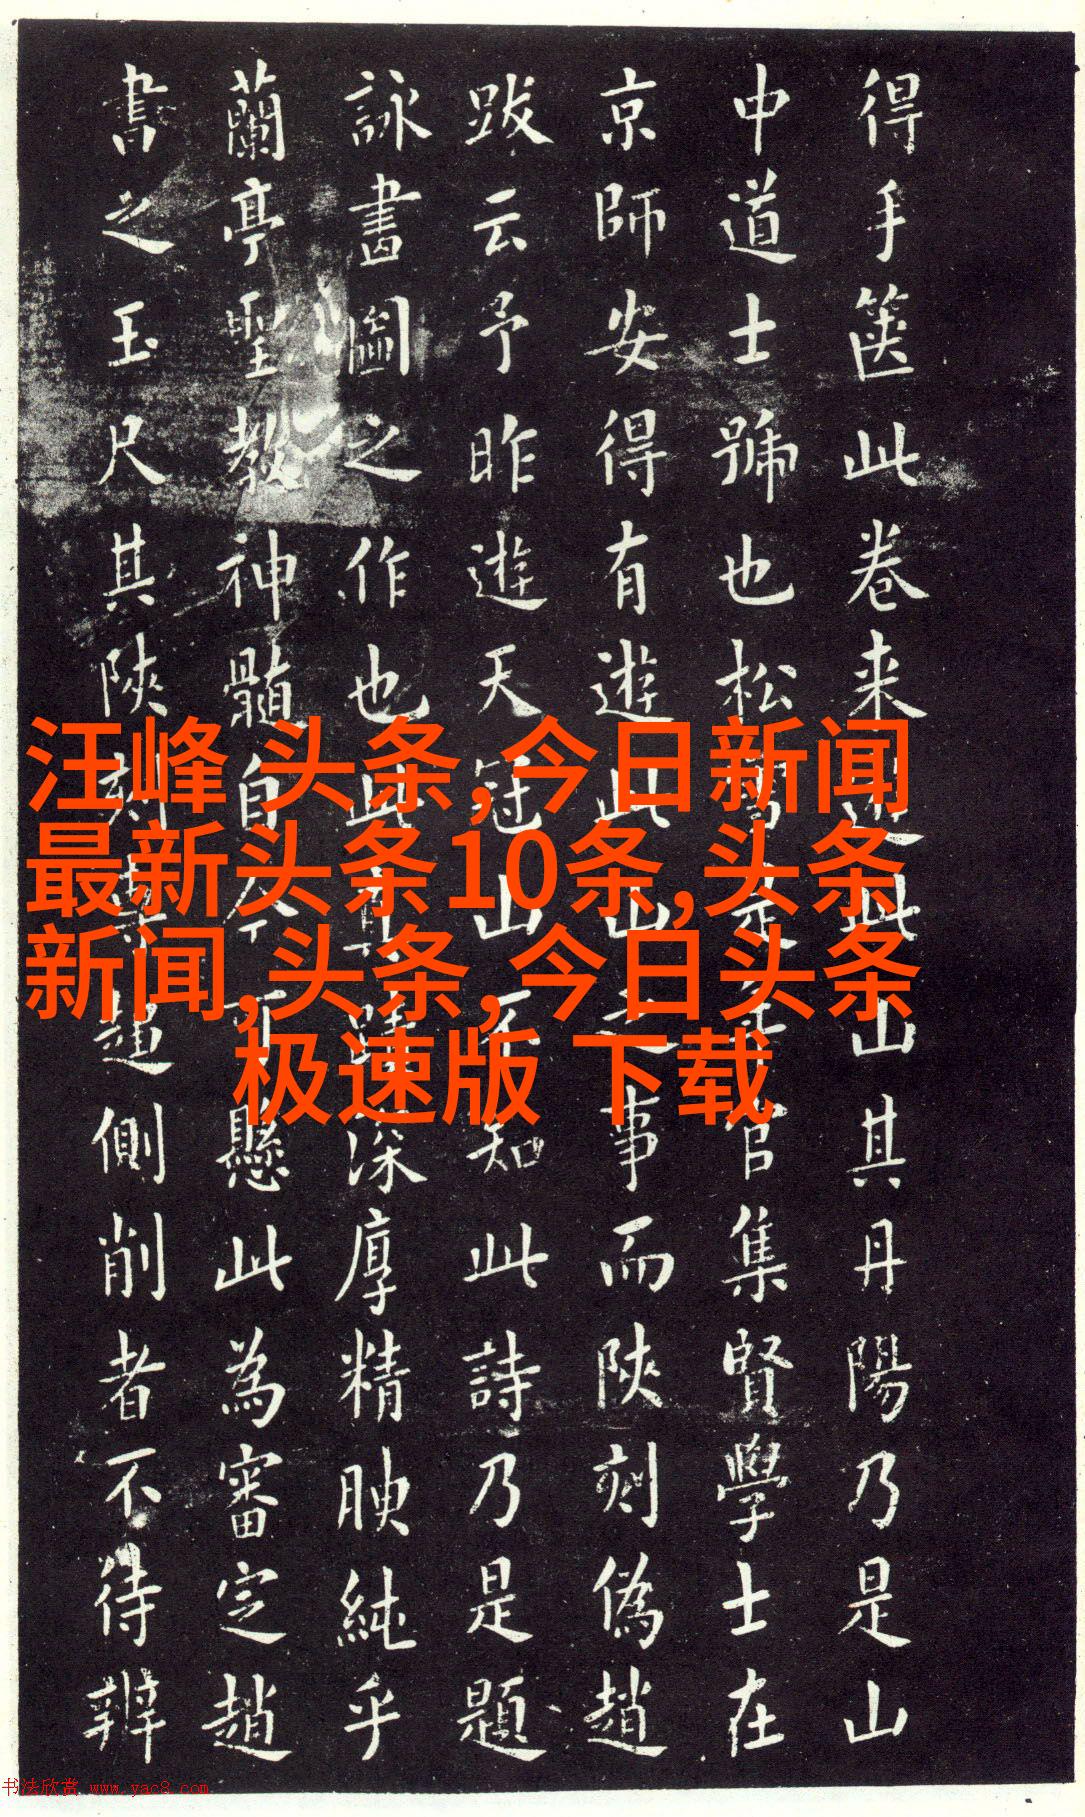 得手箧此卷来迟此山其丹陽乃是山
中道士號也松官集賢學士在
京師安得有遊此山之事而陝刻偽趙
跋云予昨遊天冠山不知此詩乃是題
詠畫圖之作也此其深厚精腴純乎
蘭亭聖教神髓自不可懸此為審定趙
書之玉尺其陝刻超側削者不待辨
汪峰,头条,今日新闻
最新头条10条,头条
新闻,头条,今日头条
极速版 下载
书法欣赏 www.yac8.com